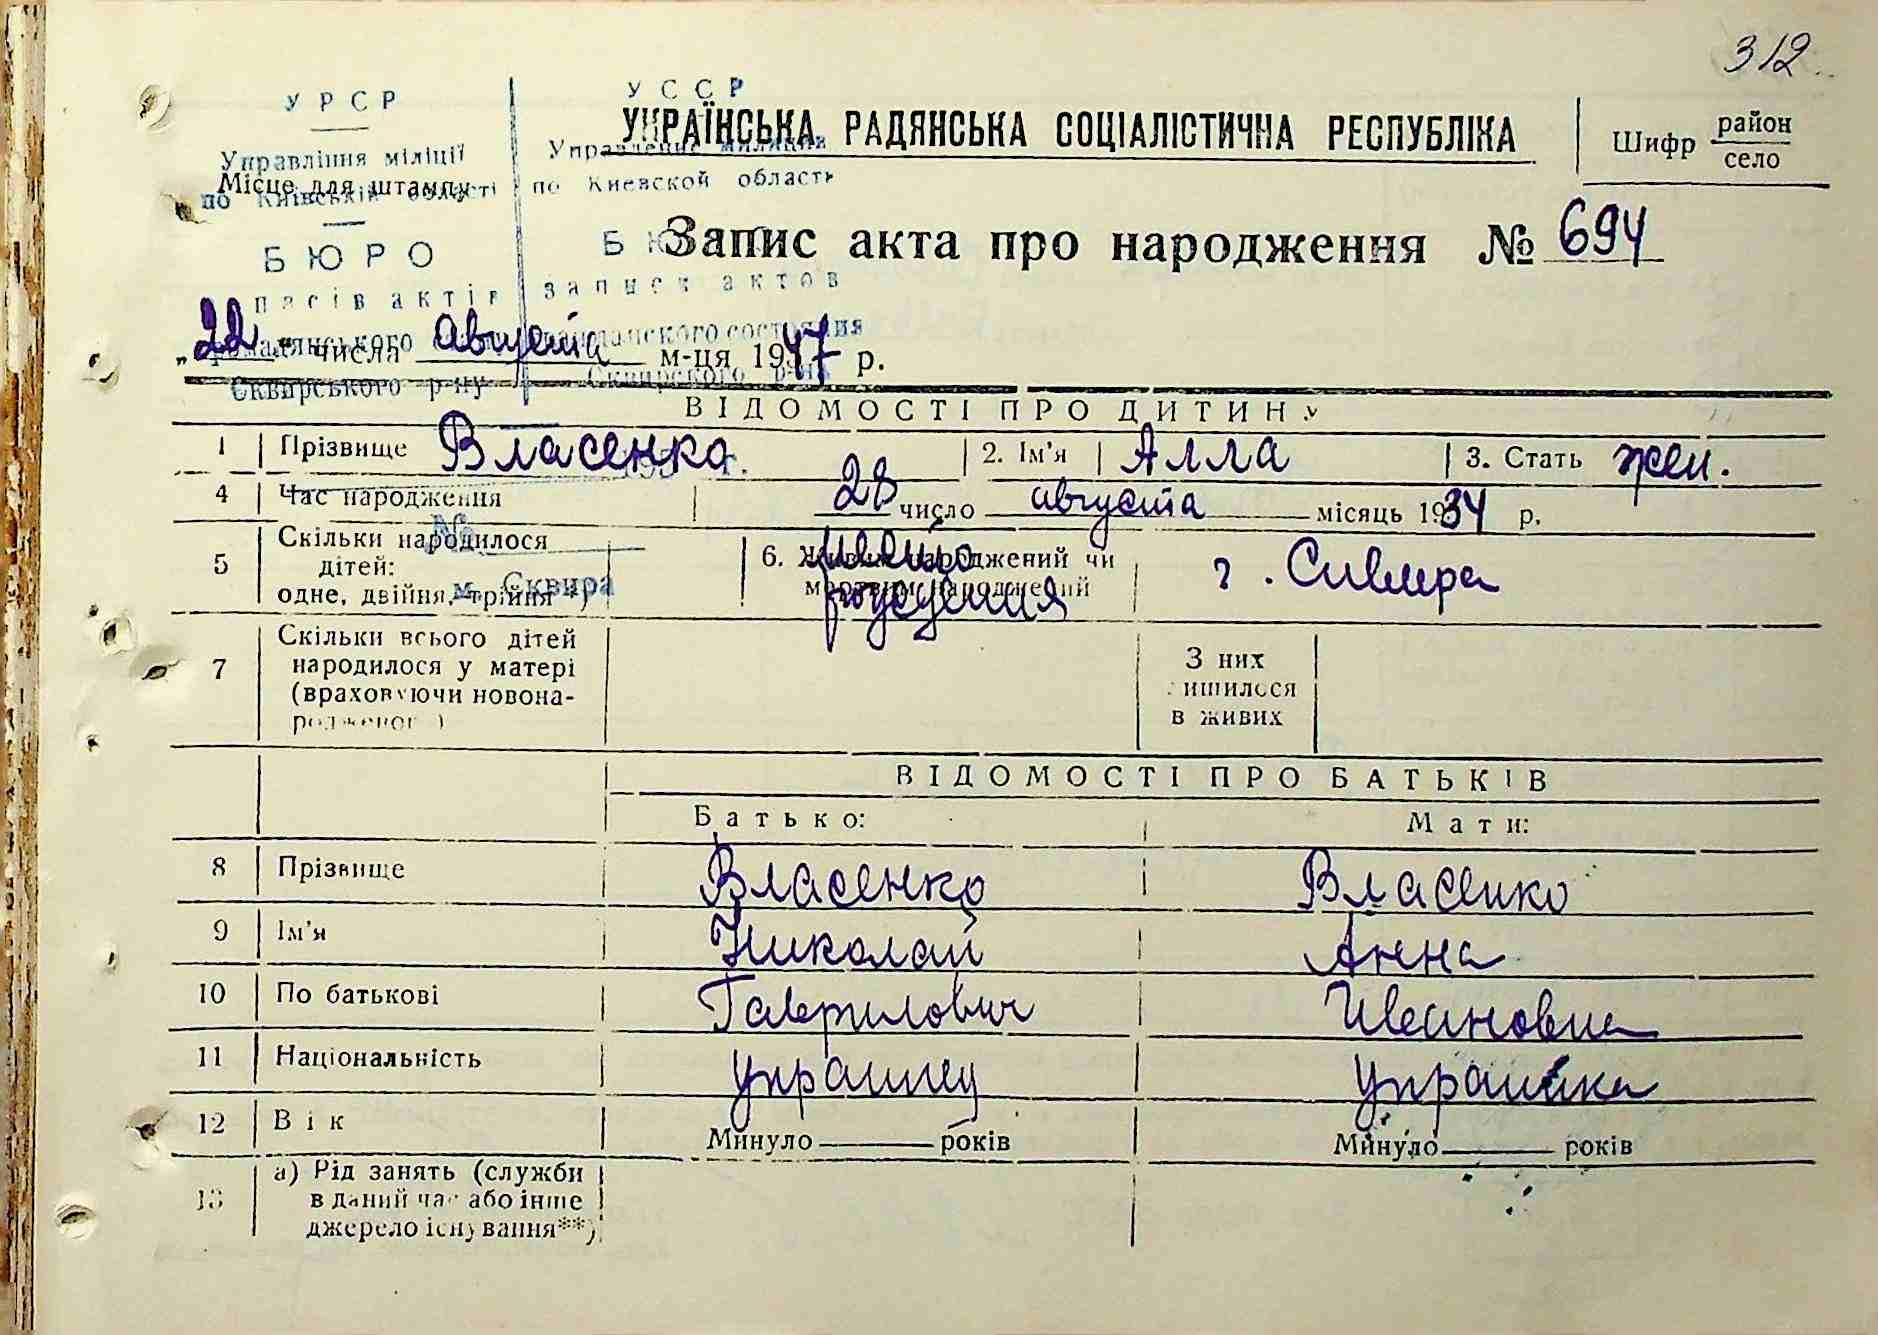 312
УРСР
УССР
УКРАЇНСЬКА РАДЯНСЬКА СОЦІАЛІСТИЧНА РЕСПУБЛІКА
Шифр район
село
Управління міліції
Управление милиции
Місце для штампу
по Київській області
по Киевской области
БЮРО
Запис акта про народження № 694
записи актов
„22“ числа августа м-ця 1947 р.
гражданского состояния
Сквирського р-ну
Сквирского р-на
ВІДОМОСТІ ПРО ДИТИНУ
1 Прізвище Власенко 2. Ім'я Алла 3. Стать жен.
4 Час народження 28 число августа місяць 1934 р.
5 Скільки народилося
дітей:
одне, двійня, трійня*)
№
м. Сквира
6. Живим народжений чи
мертвим народжений
место
рождения
г. Сквира
7 Скільки всього дітей
народилося у матері
(враховуючи новона-
родженого)
З них
лишилося
в живих
ВІДОМОСТІ ПРО БАТЬКІВ
Батько: Мати:
8 Прізвище Власенко Власенко
9 Ім'я Николай Анна
10 По батькові Гаврилович Ивановна
11 Національність украинец украинка
12 Вік Минуло років Минуло років
13 а) Рід занять (служби
в даний час або інше
джерело існування**)